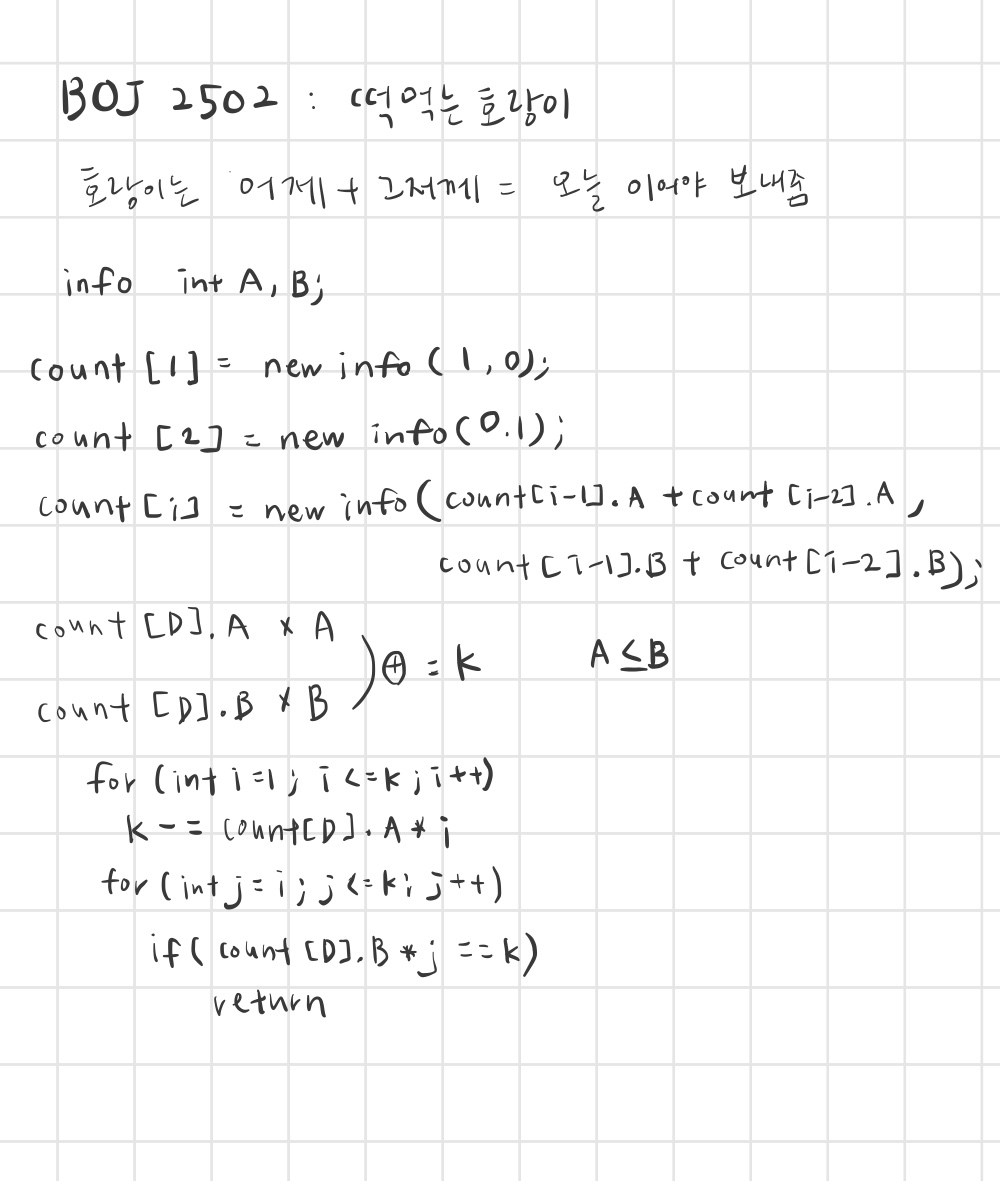 BOJ 2502 : 떡먹는 호랑이
호랑이는 어제 + 그저께 = 오늘 이어야 보내줌
info int A, B;
count [1] = new info (1, 0);
count [2] = new info(0.1);
count [i] = new info (count[i-1].A + count [i-2].A,
count [i-1].B + count [i-2].B);
count [D]. A x A
) ⊕ = k A ≤ B
count [D]. B x B
for (int i=1; i <=k; i++)
k -= count[D]. A * i
for (int j = i; j <=k; j++)
if( count [D]. B * j == k)
return